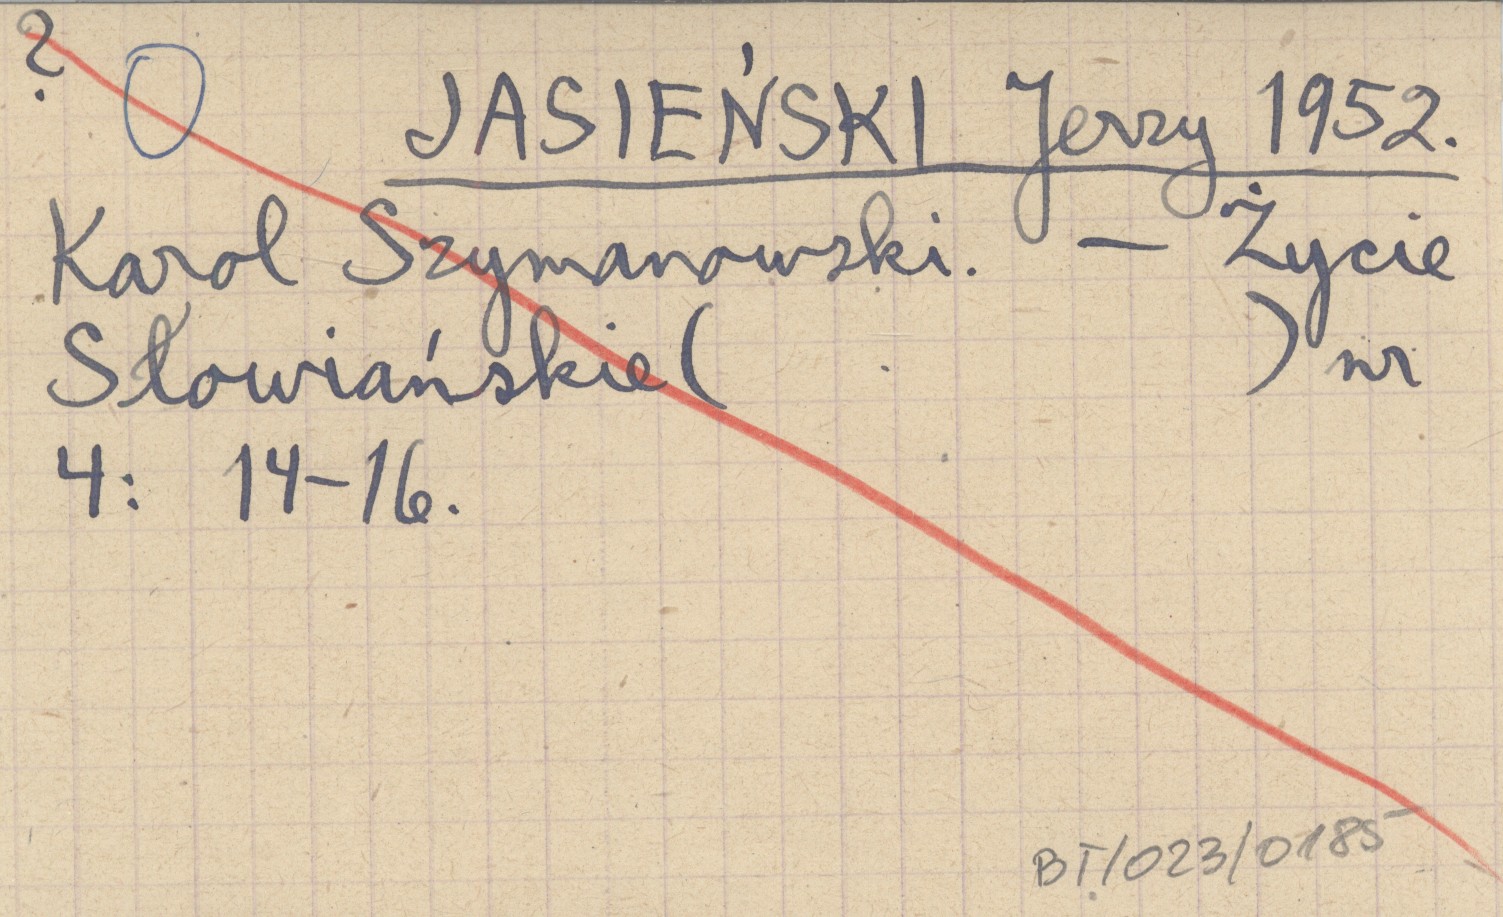 ?
JASIEŃSKI Jerzy 1952.
Karol Szymanowski. — Życie
Słowiańskie ( ) nr
4: 14-16.
BI/023/0185